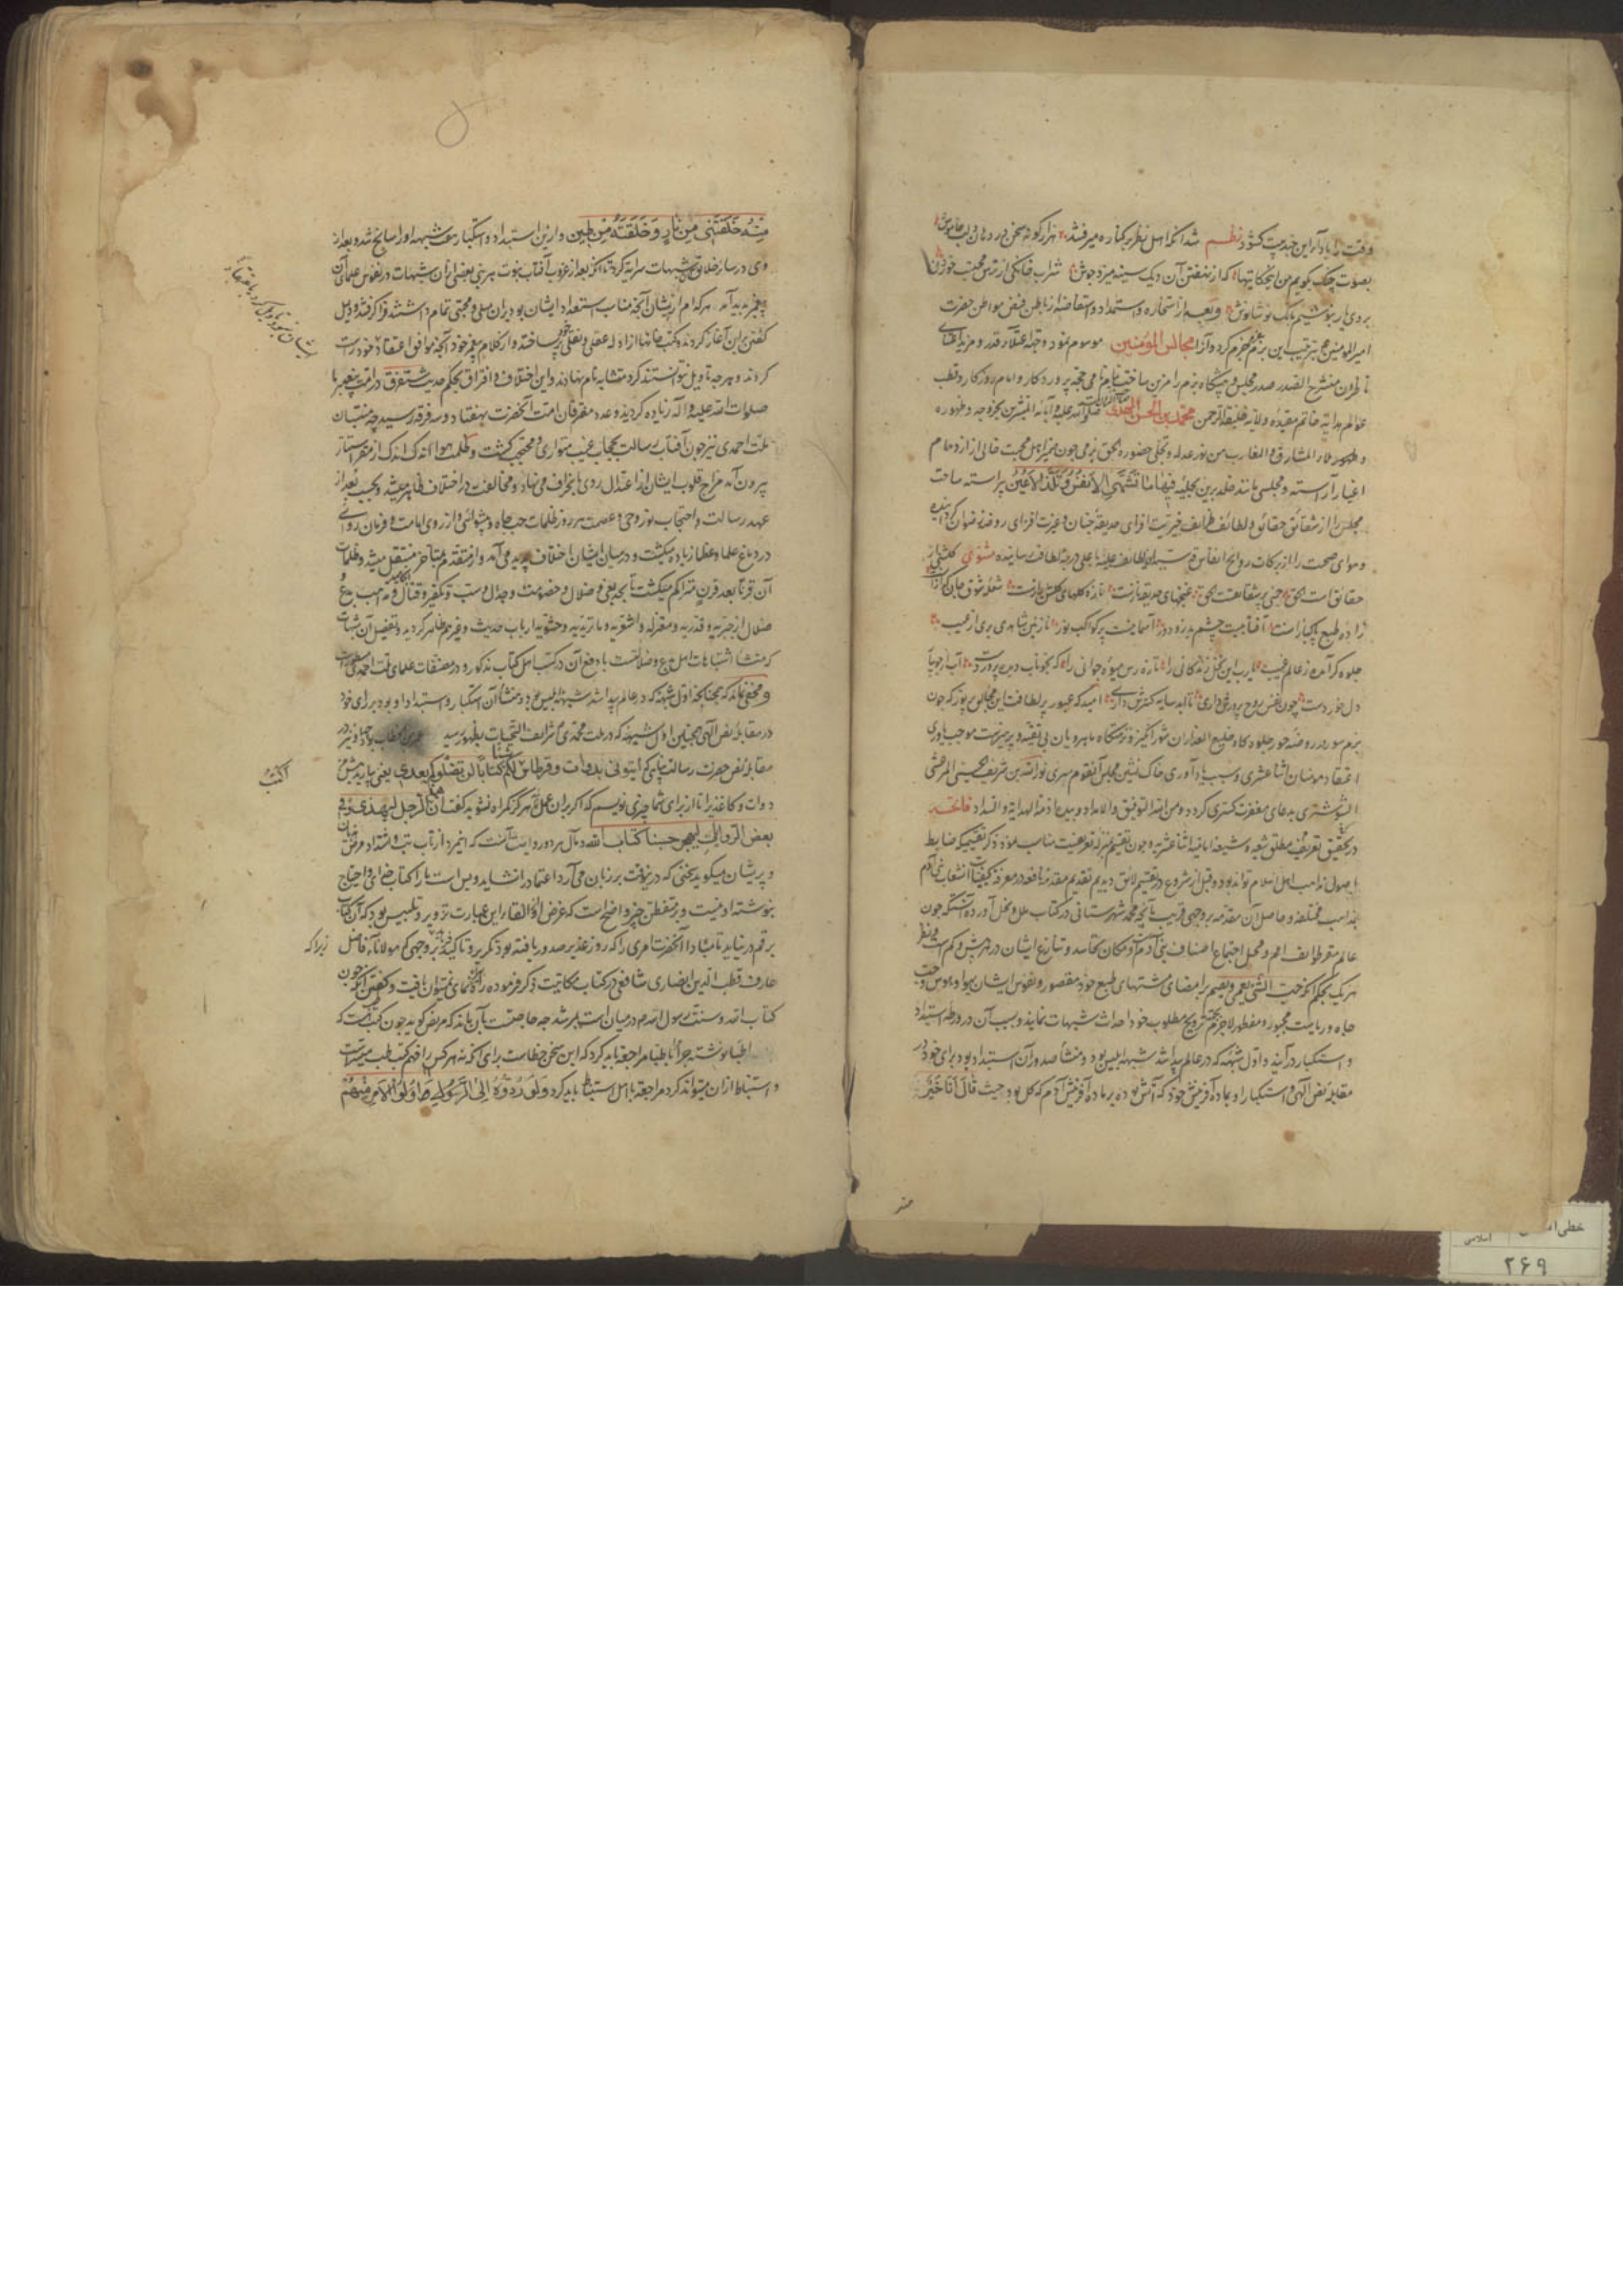 وقت را یاد آر این چند بیت کشود نظم شد آنکه اهل نظر بر کناره میرفتند هزار گونه سخن در دهان و لب خاموش
بصوت چنگ بگویم من این حکایتها که از نهفتن آن دیک سینه میزد جوش شراب خانگی از ترس محتسب خورده
بروی یار بنوشیم بانگ نوشانوش و بعد از استخاره و استمداد و استفاضه از باطن فیض مواطن حضرت
امیرالمومنین ترتیب این بزم جزم کرد و آنرا مجالس المؤمنین موسوم نمود
تا طرون منشرح الصدر صدر مجلس و پیشگاه بزم را مزین ساخت بنام نامی حجة پروردگار و امام روزگار و قطب
عالم هدایة خاتم مقیده ولایة خلیفة الرحمن محمد بن الحسن المهدی صلوات الله علیه و آبائه
المشارق و المغارب من نور عدله و تجلی حضوره بحق بزمی چون ضمیر اهل محبت خالی از ازدحام
اغیار آراسته و مجلسی مانند خلد برین بحلیه فیها ما تشتهی الانفس و تلذ الاعین پیراسته ساحت
مجلس را از شقائق حقائق و لطائف ظرایف خیریت افزای حدیقه جنان و عزت افزای روضه رضوان گردانیده
و هوای صحبت را از برکات روایح انفاس قدسیه باعلی درجه لطافت رسانیده مثنوی گلشنی از
حقائق است بحق چمنی پر شقایقست بحق غنچهای حدیقه نازست تازه گلهای گلشن رازست شعله شوق جان گدازانست
زاده طبع پاکبازانست آفتابیست چشم بد زو دور آسمانیست پر کواکب نور نازنین شاهدی بری از عیب
جلوه گر آمده ز عالم غیب یا رب این نخل زندگانی را تازه رس میوه جوانی را که بخوناب دیده پرورد
دل خورد دست چون نفس روح پرورش داری تا ابد سایه گسترش داری امید که عبور پر لطافت این مجالس پر نور که چون
بزم سور در روضه حور جلوه گاه خلیع العذاران شورانگیز و نزهتگاه ماهرویان بی تقیه و پرهیزست موجب یاوری
اعتقاد مومنان اثنا عشری و سبب یادآوری خاک نشین مجلس آنقوم سری نورالله بن شریف الحسینی المرعشی
الشوشتری بدعای مغفرت گستری گردد و من الله التوفیق و الامداد و بیده ازمة الهدایة و السداد فاتحه
در تحقیق تعریف مطلق شیعه و شیعه امامیه اثنا عشریه و چون تقسیم بمنزله تعریفست مناسب نمود ذکر تقسیمی که ضابط
اصول مذاهب اهل اسلام تواند بود و قبل از شروع در تقسیم لائق دیدیم تقدیم مقدمه نافعه در معرفة کیفیات انشعاب بنی آدم
بمذاهب مختلفه و حاصل آن مقدمه بر وجهی قریب بآنچه محمد شهرستانی در کتاب ملل و نحل آورده آنستکه چون
عالم مقر طوایف امم و محل اجتماع اصناف بنی آدم و مکان تحاسد و تنازع ایشان در هر بیش و کم است
هر یک بحکم آنکه حب الشیء یعمی و یصم بر امضای مشتهای طبع خود مقصور و نفوس ایشان بهوا و هوس و حب
جاه و ریاست مجبور و مفطور لاجرم بجهة ترویج مطلوب خود احداث شبهات نمایند و بسبب آن در ورطه استبداد
و استکبار درآیند و اول شبهه که در عالم پیدا شد شبهه ابلیس بود و منشأ صدور آن استبداد بود برای خود در
مقابله نص الهی و استکبار او بماده آفرینش خود که آتش بوده بر ماده آفرینش آدم که گل بود حیث قال انا خیر
منه خلقتنی من نار و خلقته من طین و از این استبداد و استکبار هفت شبهه او را سانح شد و بعد از
وی در سائر خلائق شبهات سرایه کرد تا آنکه بعد از غروب آفتاب نبوت هر نبی بعضی از آن شبهات در نفوس علمای آن
پیغمبر پدید آمد هر کدام از ایشان آنچه مناسب استعداد ایشان بود بران میلی و محبتی تمام داشتند فرا گرفتند و دلیل
گفتن بران آغاز کردند و کتب خانها از ادله عقلی و نقلی پر ساختند و از کلام پیغمبر خود آنچه موافق اعتقاد خود راست
کردند و هر چه تاویل نتوانستند کرد متشابه نام نهادند و این اختلاف و افتراق بحکم حدیث ستفترق در امت پیغمبر ما
صلوات الله علیه و آله زیاده گردیده و عدد مفترقان امت آنحضرت بهفتاد و سه فرقه رسید چه منتسبان
ملت احمدی نیز چون آفتاب رسالت بحجاب غیب متواری و محتجب گشت و ظلمت هوا اندک اندک از مقر استتار
بیرون آمد مزاج قلوب ایشان از اعتدال روی بانحراف می نهاد و مخالفت در اختلاف ظاهر میشد و بحسب بعد از
عهد رسالت و احتجاب نور وحی و عصمت هر روز ظلمات حب جاه و پیشوائی و آرزوی امامت و فرمان روائی
در دماغ علما و عظما زیاده میگشت و در میان ایشان اختلاف پدید می آمد و از متقدم بمتأخر منتقل میشد و ظلمات
آن قرنا بعد قرن متراکم میگشت تا بحد بغی و ضلال و خصومت و جدال و سب و تکفیر و قتال انجامید و مذاهب بدع و
ضلال از جبریه و قدریه و معتزله و اشعریه و ماتریدیه و حشویه ارباب حدیث و غیرهم ظاهر گردید و تفصیل آن شبهات
که منشأ اشتباهات اهل بدع و ضلالتست با دفع آن در کتب اهل کتاب مذکور و در مصنفات علمای ملت احمدی مسطورست
و مخفی نماند که همچنانکه اول شبهه که در عالم پیدا شد شبهه ابلیس بود و منشأ آن استکبار و استبداد او بود برای خود
در مقابله نص الهی همچنین اول شبهه که در ملت محمدی علیه شرائف التحیات بظهور رسید عمر بن الخطاب بود چه او نیز در
مقابله نص حضرت رسالت پناهی که ایتونی بدوات و قرطاس اکتب لکم کتابا لن تضلوا بعدی یعنی بیارید پیش من
دوات و کاغذی را تا از برای شما چیزی نویسم که اگر بران عمل نمایند هرگز گمراه نشوید گفت ان الرجل لیهذی و فی
بعض الروایات لیهجر حسبنا کتاب الله و مآل هر دو روایت آنست که این مرد از تاب تب و اشتداد مرض هذیان
و پریشان میگوید سخنی که درین وقت بر زبان می آرد اعتماد را نشاید و بس است ما را کتاب خدای و احتیاج
بنوشته او نیست و بر متفطن خبیر واضح است که غرض او از القاء این عبارت تزویر و تلبیس بود که آن کتاب
برقم در نیاید تا مبادا آنحضرت امری را که روز غدیر صدور یافته بود مکرر و تأکید فرماید بر وجهی که مولانا فاضل
زیرا که
عارف قطب الدین انصاری شافعی در کتاب مکاتیب ذکر فرموده راه بی راهنمای نمیتوان یافت و گفتن آنکه چون
کتاب الله و سنت رسول الله در میان است بمرشد چه حاجتست بآن ماند که مریض گوید چون کتب طب هست که
اطبا نوشته چرا باطبا مراجعه باید کرد که این سخن خطاست برای آنکه نه هر کس را فهم کتب طب میسرست
و استنباط از ان میتواند کرد مراجعه باهل استنباط باید کرد و لو ردوه الی الرسول و الی اولی الامر منهم
اکتب
خطی
اسلامی
۲۶۹